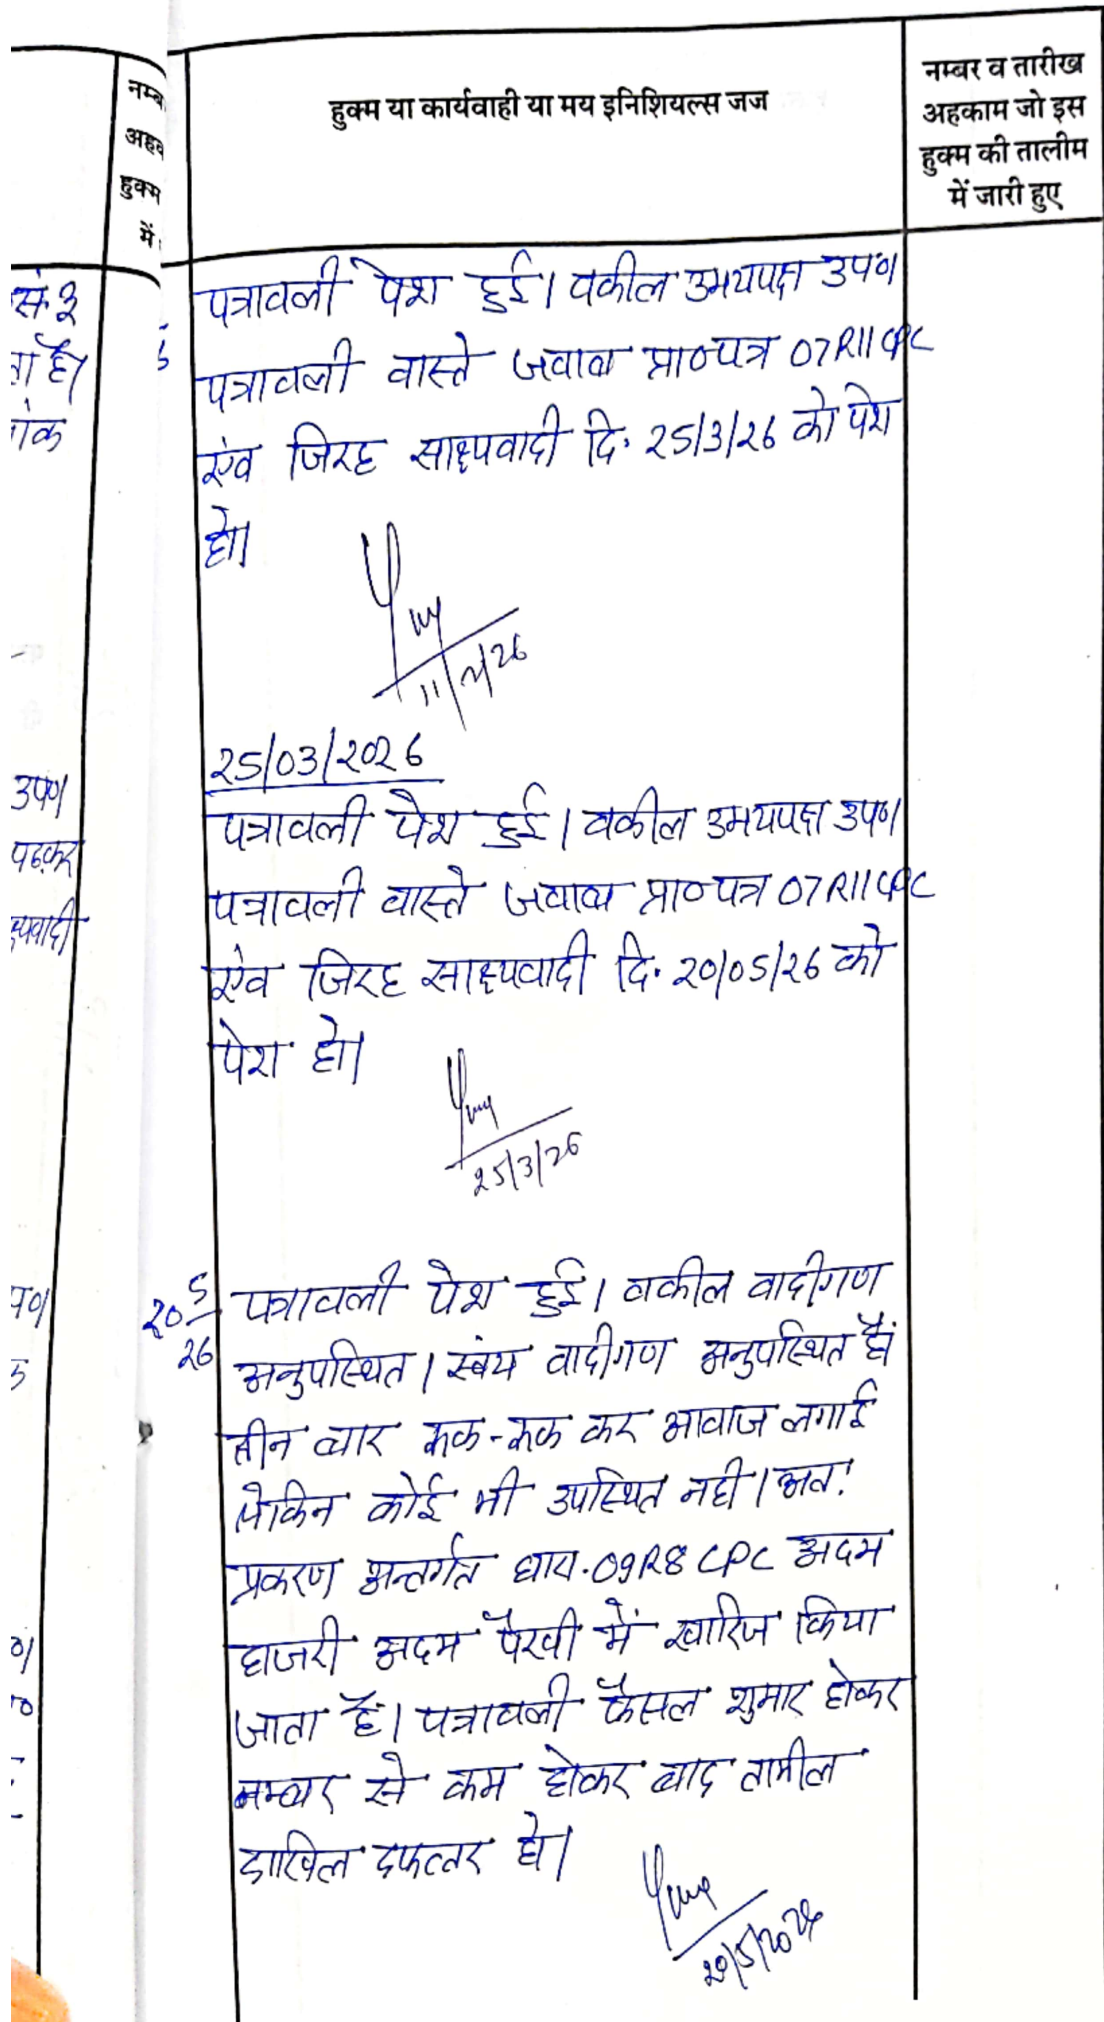 हुक्म या कार्यवाही या मय इनिशियल्स जज
नम्बर व तारीख
अहकाम जो इस
हुक्म की तालीम
में जारी हुए
पत्रावली पेश हुई। वकील उभयपक्ष उप०।
पत्रावली वास्ते जवाब प्रा०पत्र 07R11 CPC
एंव जिरह साक्ष्यवादी दि. 25/3/26 को पेश
हो।
11/2/26
25/03/2026
पत्रावली पेश हुई। वकील उभयपक्ष उप०।
पत्रावली वास्ते जवाब प्रा०पत्र 07R11 CPC
एंव जिरह साक्ष्यवादी दि. 20/05/26 को
पेश हो।
25/3/26
20 5/26
पत्रावली पेश हुई। वकील वादीगण
अनुपस्थित। स्वंय वादीगण अनुपस्थित हैं
तीन बार रूक-रूक कर आवाज लगाई
लेकिन कोई भी उपस्थित नही। अत:
प्रकरण अन्तर्गत धारा.09R8 CPC अदम
हाजरी अदम पैरवी में खारिज किया
जाता है। पत्रावली फैसल शुमार होकर
नम्बर से कम होकर बाद तामील
दाखिल दफ्तर हो।
20/5/2026
नम्ब
अहव
हुक्म
में
सं 2
ता है।
उप०।
पढ़कर
क्ष्यवादी